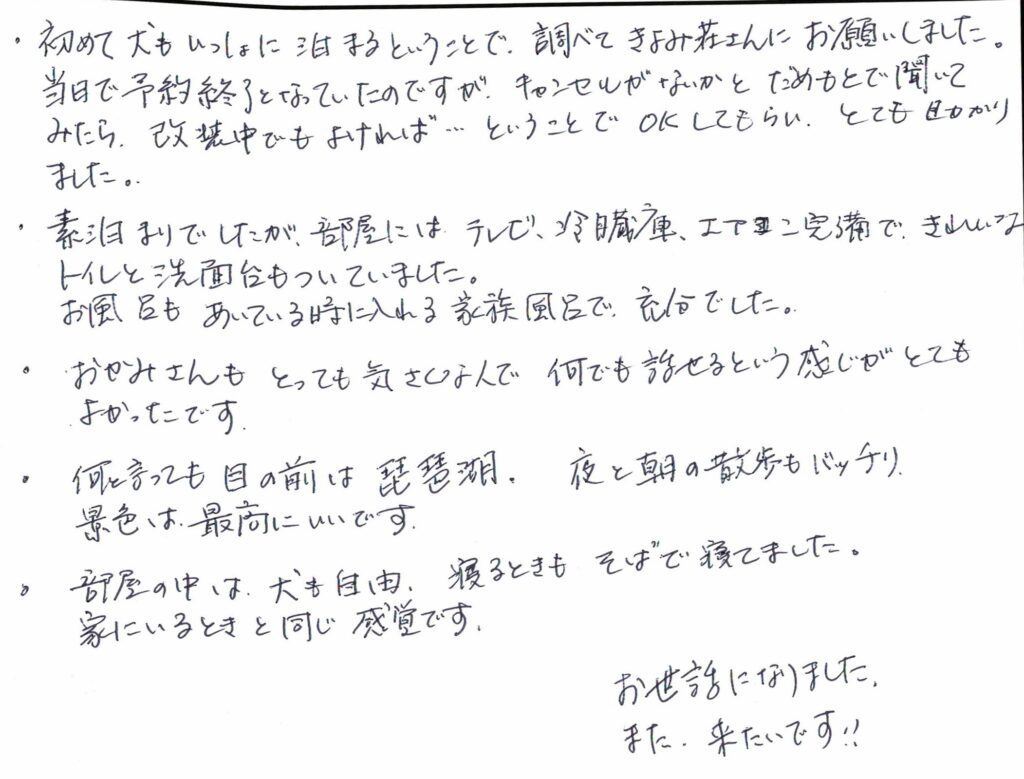 ・初めて犬もいっしょに泊まるということで、調べてきよみ荘さんにお願いしました。
当日で予約終了となっていたのですが、キャンセルがないかとだめもとで聞いて
みたら、改装中でもよければ…ということでOKしてもらい、とても助かり
ました。
・素泊まりでしたが、部屋にはテレビ、冷蔵庫、エアコン完備で、きれいな
トイレと洗面台もついていました。
お風呂もあいている時に入れる家族風呂で、充分でした。
・おかみさんもとっても気さくな人で何でも話せるという感じがとても
よかったです。
・何と言っても目の前は琵琶湖。夜と朝の散歩もバッチリ。
景色は最高にいいです。
・部屋の中は、犬も自由、寝るときもそばで寝てました。
家にいるときと同じ感覚です。
お世話になりました。
また、来たいです!!